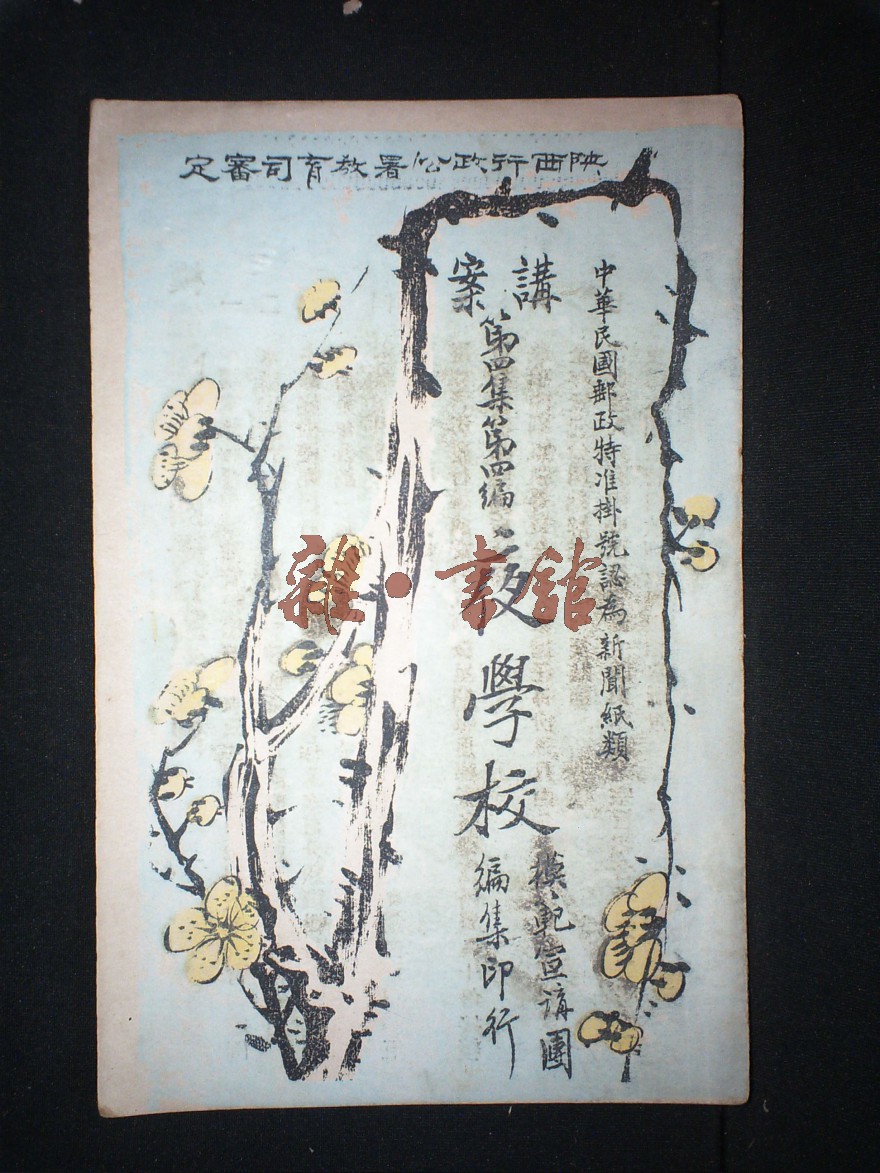 陝西行政公署教育司審定
中華民國郵政特准掛號認為新聞紙類
講案
第四集第四編
設學校
模範宣講團
編集印行
雜·書館